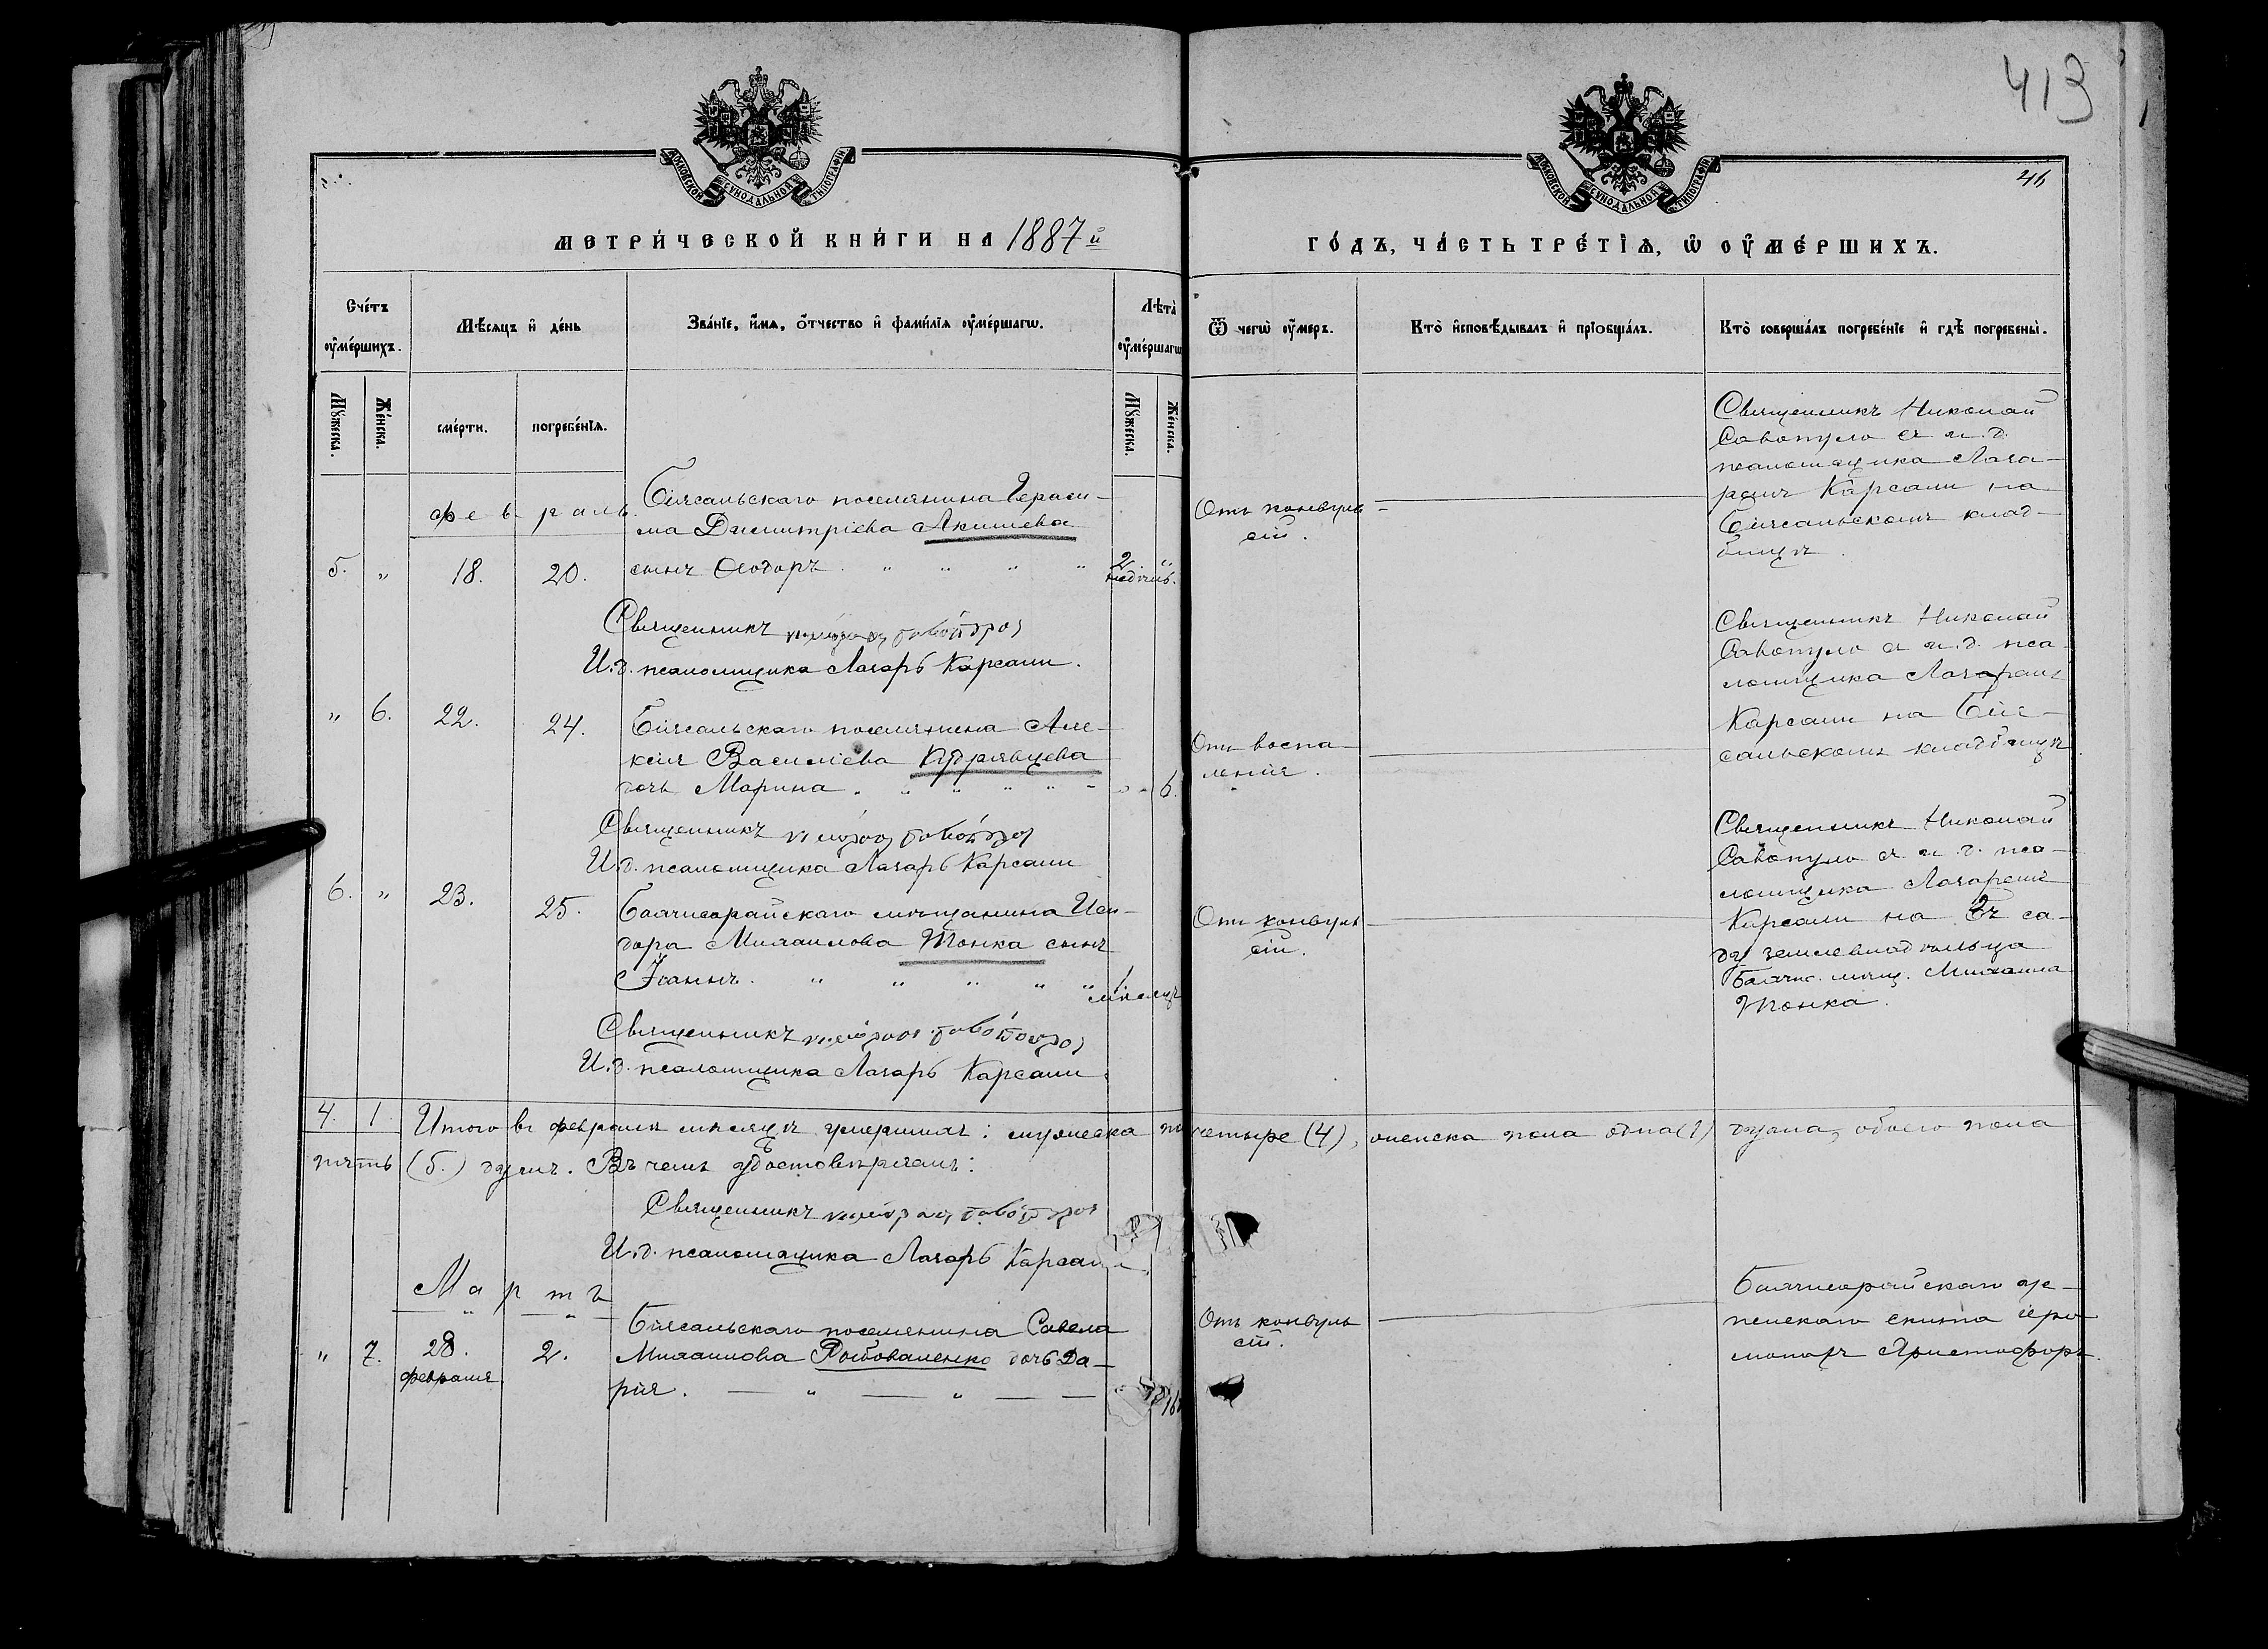 413
46
МОСКОВСКОЙ СУНОДАЛЬНОЙ ТИПОГРАФІИ
МОСКОВСКОЙ СУНОДАЛЬНОЙ ТИПОГРАФІИ
МЕТРИ́ЧЕСКОЙ КНИ́ГИ НА 1887 й
ГО́ДЪ, ЧА́СТЬ ТРЕ́ТІѦ, Ѡ ОУ҆МЕ́РШИХЪ.
Сче́тъ оу҆ме́ршихъ.
Мѣ́сяцъ и҆ де́нь
Зва́нїе, и҆́мѧ, ѻ҆́тчество и҆ фами́лїѧ оу҆ме́ршагѡ.
Лѣта̀ оу҆ме́ршагѡ
Ѿ чегѡ̀ оу҆́меръ.
Кто̀ и҆сповѣ́дывалъ и҆ прїѻбща́лъ.
Кто̀ соверша́лъ погребе́нїе и҆ гдѣ̀ погребены̀.
Мꙋ́жеска.
Же́нска.
сме́рти.
погребе́нїѧ.
Мꙋ́жеска.
Же́нска.
февраль.
5. " 18. 20.
Біясальскаго поселянина Гераси-
ма Димитріева Акишева
сынъ Ѳеодоръ. " " " "
2 недѣль.
Отъ конвуль-
сій.
Священникъ Николай
Савопуло съ и. д.
псаломщика Лаза-
ремъ Карсани на
Біясальскомъ клад-
бищѣ.
Священникъ
И.д. псаломщика Лазарь Карсани.
" 6. 22. 24.
Біясальскаго поселянина Але-
ксія Василіева Кудрявцева
дочь Марина. " " " "
6.
Отъ воспа-
ленія.
Священникъ Николай
Савопуло съ и. д. пса-
ломщика Лазаремъ
Карсани на Бія-
сальскомъ кладбищѣ.
Священникъ
И.д. псаломщика Лазарь Карсани
6. " 23. 25.
Бахчисарайскаго мѣщанина Иси-
дора Михаилова Тонка сынъ
Іоаннъ. " " " " "
1 мѣсяцъ
Отъ конвуль-
сій.
Священникъ Николай
Савопуло съ и. д. пса-
ломщика Лазаремъ
Карсани на Въ са-
ду землевладѣльца
Бахчис. мѣщ. Михаила
Тонка.
Священникъ
И.д. псаломщика Лазарь Карсани.
4. 1. Итого въ февралѣ мѣсяцѣ умершихъ: мужеска по четыре (4), женска пола одна (1) душа, обоего пола
пять (5.) душъ. Въ чемъ удостовѣряемъ:
Священникъ
И.д. псаломщика Лазарь Карсани.
Мартъ
" 7. 28. февраля 2.
Біясальскаго поселянина Савела
Михаилова дочь Да-
рія. " "
Отъ конвуль
сій.
Бахчисарайскаго Ус-
пенскаго скита іеро-
монахъ Христофоръ.